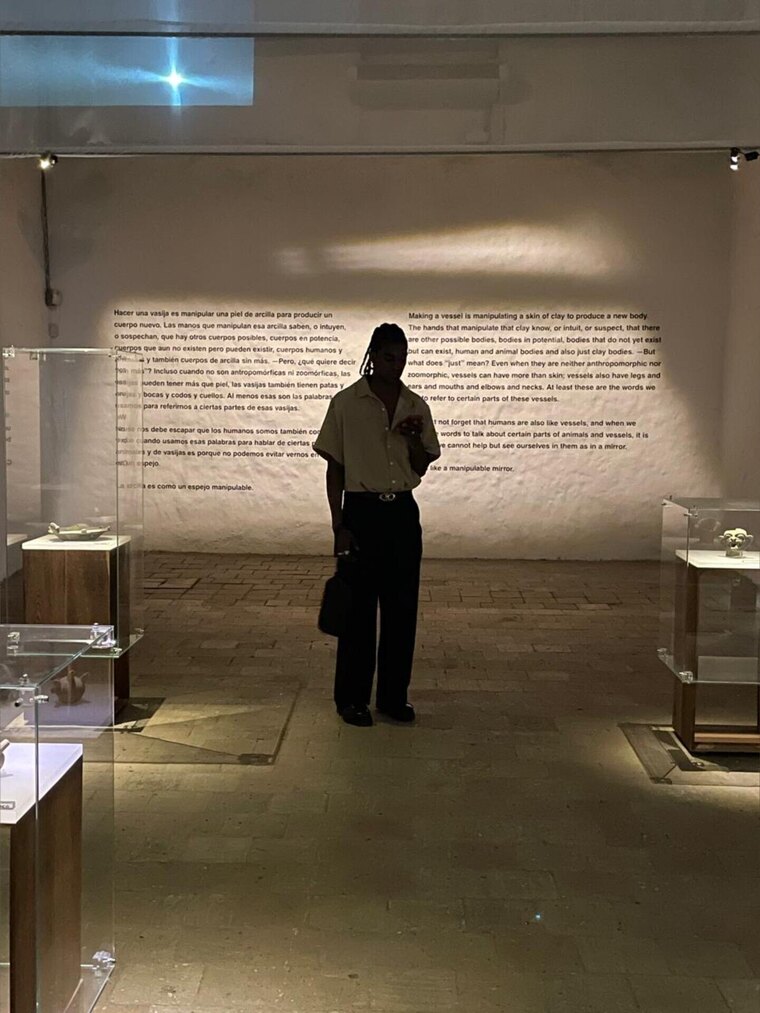 Hacer una vasija es manipular una piel de arcilla para producir un
cuerpo nuevo. Las manos que manipulan esa arcilla saben, o intuyen,
o sospechan, que hay otros cuerpos posibles, cuerpos en potencia,
cuerpos que aun no existen pero pueden existir, cuerpos humanos y
y también cuerpos de arcilla sin más. —Pero, ¿qué quiere decir
más"? Incluso cuando no son antropomórficas ni zoomórficas, las
pueden tener más que piel, las vasijas también tienen patas y
y bocas y codos y cuellos. Al menos esas son las palabras
para referirnos a ciertas partes de esas vasijas.
nos debe escapar que los humanos somos también
cuando usamos esas palabras para hablar de ciertas
y de vasijas es porque no podemos evitar vernos en
espejo.
es como un espejo manipulable.
Making a vessel is manipulating a skin of clay to produce a new body.
The hands that manipulate that clay know, or intuit, or suspect, that there
are other possible bodies, bodies in potential, bodies that do not yet exist
but can exist, human and animal bodies and also just clay bodies. —But
what does "just" mean? Even when they are neither anthropomorphic nor
zoomorphic, vessels can have more than skin; vessels also have legs and
ears and mouths and elbows and necks. At least these are the words we
to refer to certain parts of these vessels.
not forget that humans are also like vessels, and when we
words to talk about certain parts of animals and vessels, it is
we cannot help but see ourselves in them as in a mirror.
like a manipulable mirror.